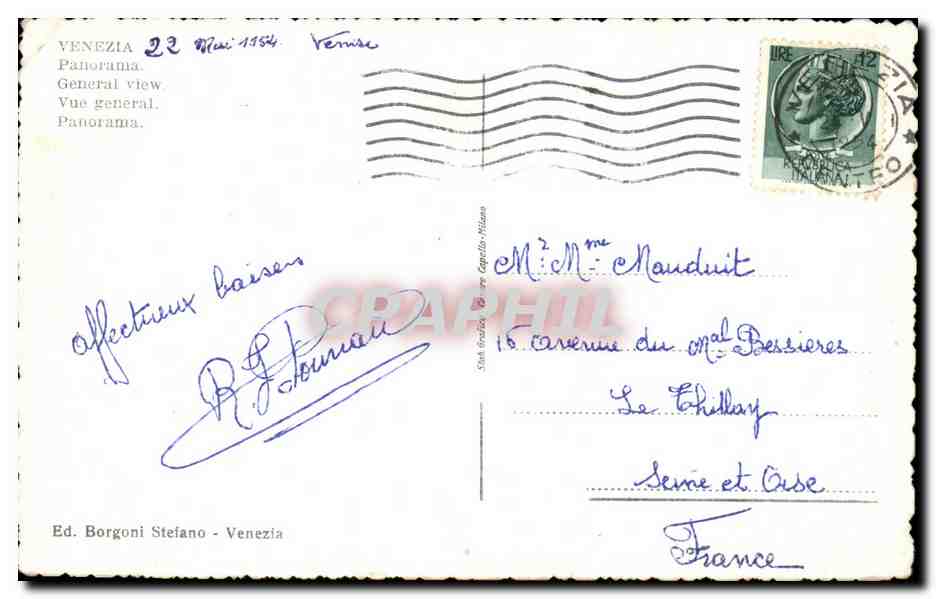 VENEZIA 22 Mai 1954 Venise
Panorama.
General view.
Vue general.
Panorama.
LIRE 12
REPVBBLICA
ITALIANA
VENEZIA
affectueux baisers
R
Mr. Mme Mauduit
16 avenue du Mal Bessieres
Le Thillay
Seine et Oise
France
Stab. Grafico Cesare Capello-Milano
CRAPHIL
Ed. Borgoni Stefano - Venezia